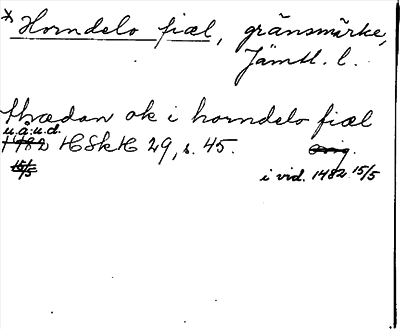 * Horndelo fiæl, gränsmärke,
Jämtl. l.
thædan ok i horndelo fiæl
u.å.u.d.
1482 HSkH 29, s. 45. Orig.
15/5
i vid. 1482 15/5